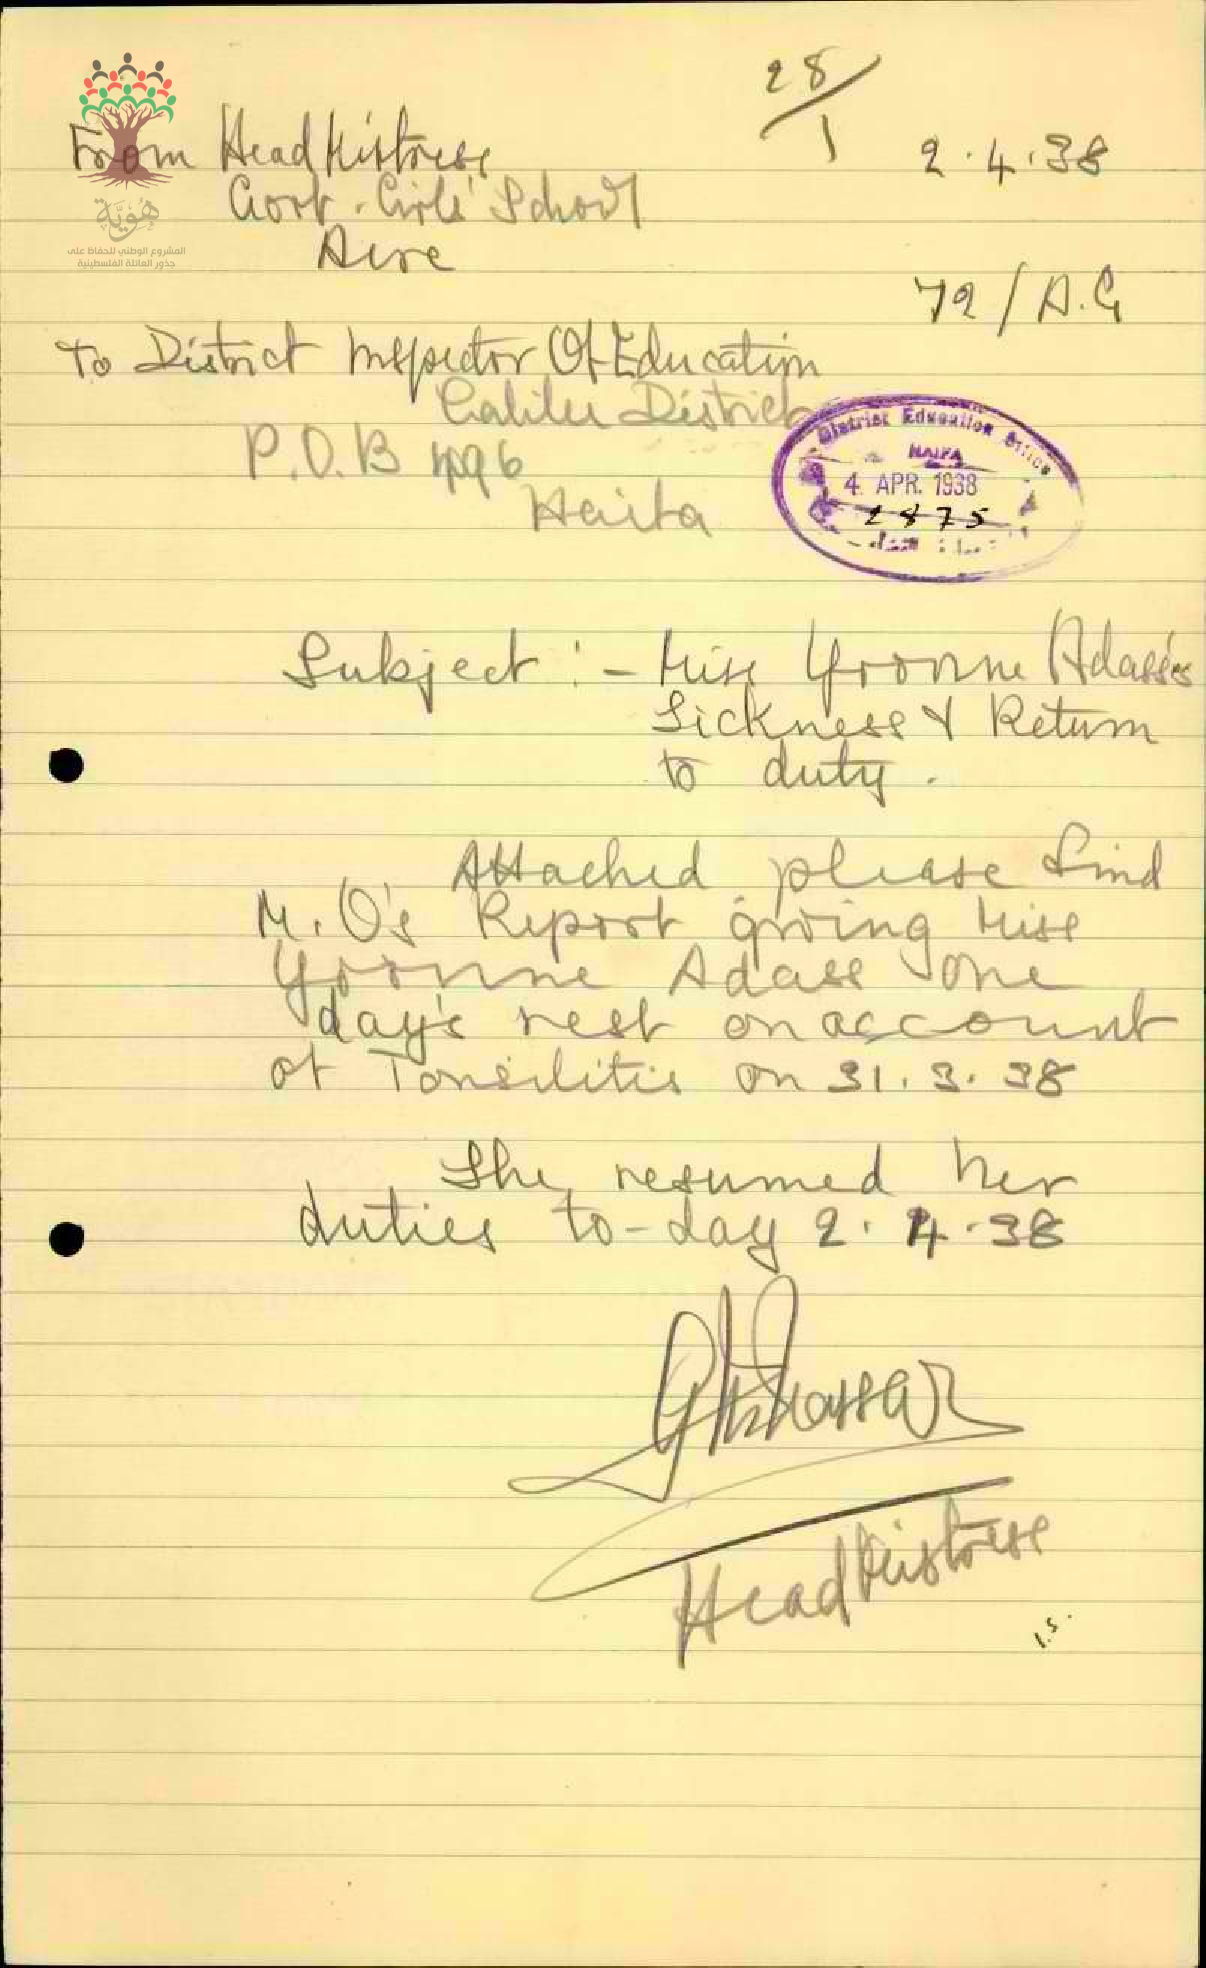 28/1
2.4.38
From Head Mistress
Govt. Girls' School
Acre
72/A.G
هُوِيَّة
المشروع الوطني للحفاظ على
جذور العائلة الفلسطينية
To District Inspector Of Education
Galilee District
P.O.B 496
Haifa
District Education Office
HAIFA
4 APR. 1938
2875
Subject :- Miss Yvonne Adass's
Sickness & Return
to duty.
Attached please find
M.O's Report giving Miss
Yvonne Adass one
day's rest on account
of Tonsilitis on 31.3.38
She resumed her
duties to-day 2.4.38
Head Mistress
1.5.